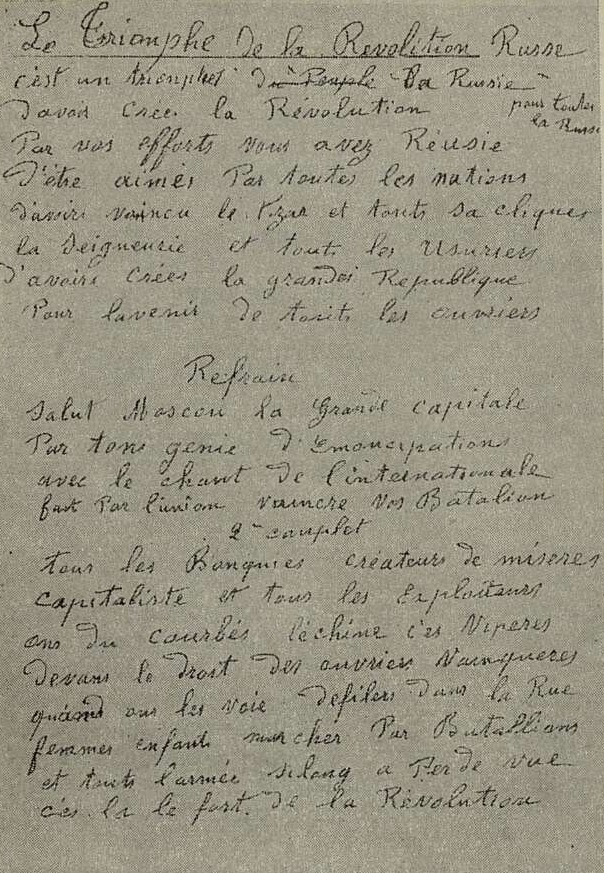 Le Triomphe de la Revolition Russe
c'est un triomphes du Peuple la Russie
pour toutes
la Russie
D'avoir Creer la Révolution
Par vos efforts vous avez Réusie
D'être aimés Par toutes les nations
d'avoirs vaincu le Tzar et touts sa cliques
la Seigneurie et touts les usuriers
d'avoirs Créés la grandes Republique
Pour lavenir de touts les ouvriers
Refrain
Salut Moscou la Grande capitale
Par tons genie d'Emancipations
avec le chant de l'internationale
fait Par l'union vaincre vos Batalion
2me couplet
tous les Banquies créateurs de miseres
capitaliste et tous les Exploiteurs
ons du courbés léchine c'es Viperes
Devans le Droit des ouvriers Vainqueres
quand ons les voie defilers dans la Rue
femmes enfants marcher Par Batallions
et touts l'armée silong a Perde vue
c'es la le fort de la Révolution